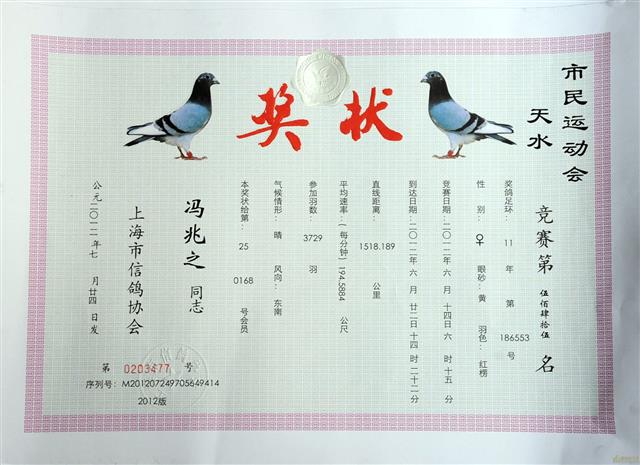 奖状
市民运动会
天水
竞赛第 伍佰肆拾伍 名
奖鸽足环: 11 年 第 186553 号
性 别: ♀ 眼砂: 黄 羽色: 红楞
竞赛日期: 二〇一二年 六 月 十四日 六 时 十五 分
到达日期: 二〇一二年 六 月 廿二日 十四 时 二十二分
直线距离: 1518.189 公里
平均速率:(每分钟) 194.5884 公尺
参加羽数: 3729 羽
气候情形: 晴 风向: 东南
本奖状给第: 25 0168 号会员
冯兆之 同志
上海市信鸽协会
公元二〇一二年七 月 廿四 日 发
第 0203477 号
序列号: M201207249705649414
2012版